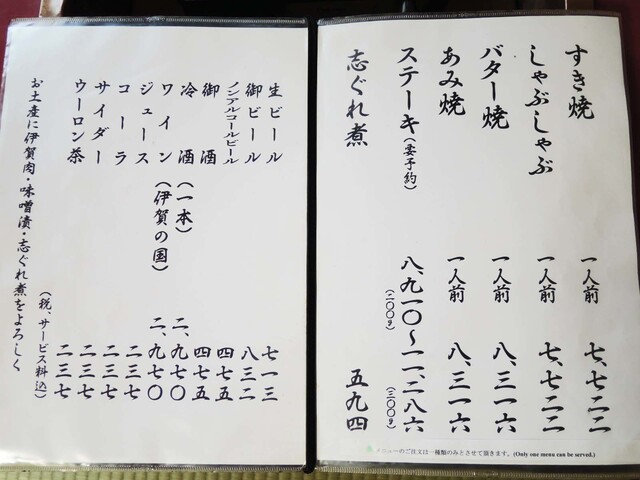 すき焼 一人前 七、七二二
しゃぶしゃぶ 一人前 七、七二二
バター焼 一人前 八、三一六
あみ焼 一人前 八、三一六
ステーキ(要予約) 八、九一〇〜一一、二八六
(二〇〇g) (三〇〇g)
志ぐれ煮 五九四
メニューのご注文は一種類のみとさせて頂きます。(Only one menu can be served.)
生ビール 七一三
御ビール 八三二
ノンアルコールビール 四七五
御酒 四七五
冷酒(一本) 二、九七〇
ワイン(伊賀の国) 二、九七〇
ジュース 二三七
コーラ 二三七
サイダー 二三七
ウーロン茶 二三七
(税、サービス料込)
お土産に伊賀肉・味噌漬・志ぐれ煮をよろしく